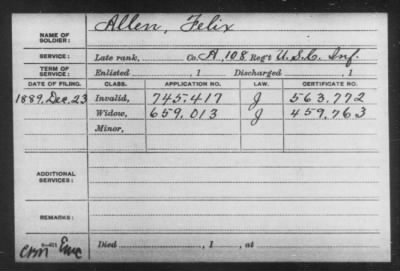 Allen, Felix
NAME OF SOLDIER:
SERVICE: Late rank, Co. A, 108 Reg't U.S.C. Inf.
TERM OF SERVICE: Enlisted , 1 Discharged , 1
DATE OF FILING. CLASS. APPLICATION NO. LAW. CERTIFICATE NO.
1889, Dec. 23 Invalid, 745.417 J 563.772
Widow, 659,013 J 459,763
Minor,
ADDITIONAL SERVICES:
REMARKS:
Died , 1 , at